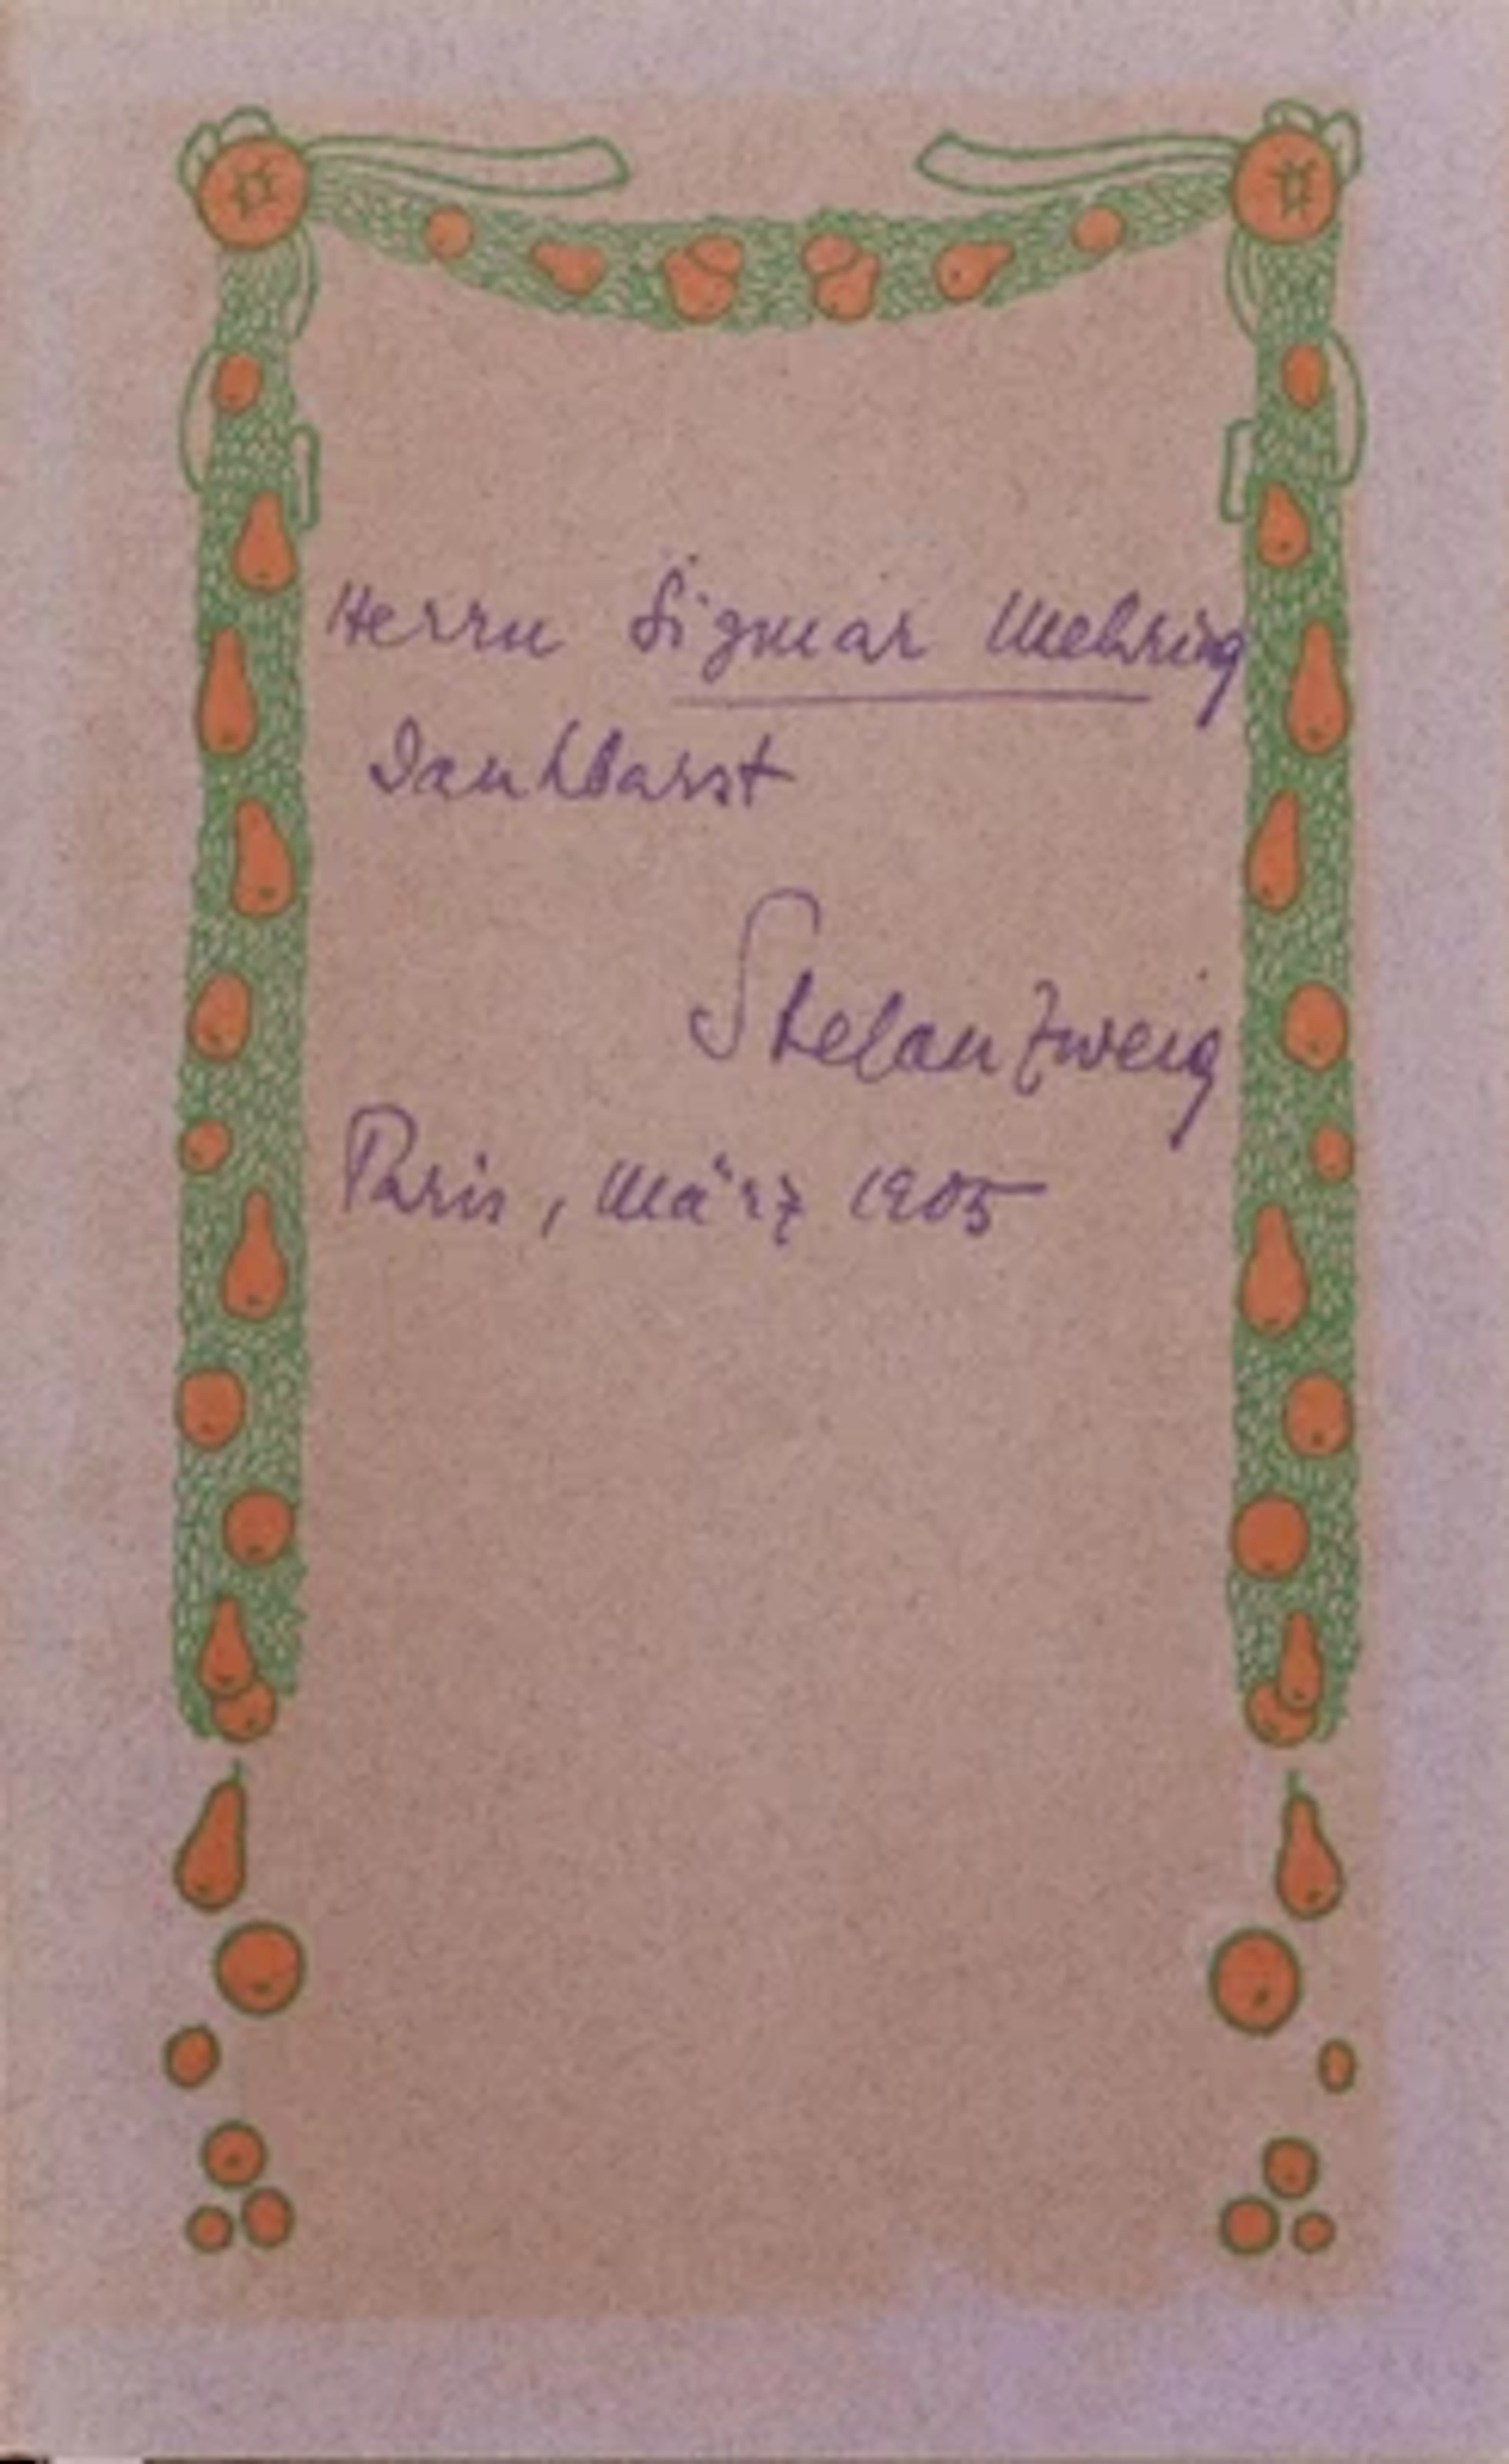 Herrn Sigmar Mehring
Dankbarst
Stefan Zweig
Paris, März 1905